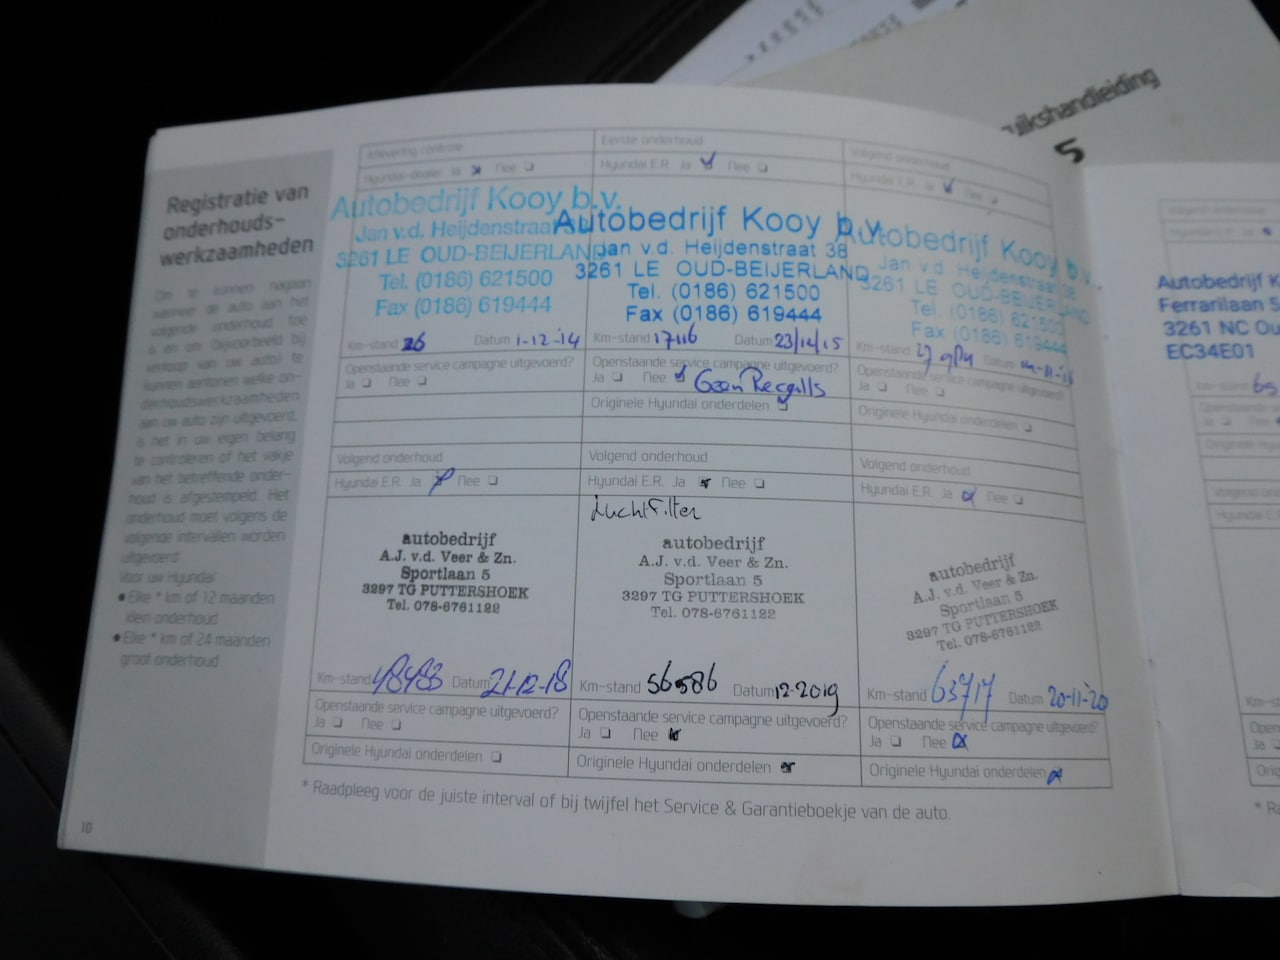 uikshandleiding
5
Registratie van
onderhouds-
werkzaamheden
Om te kunnen nagaan
wanneer de auto aan het
volgende onderhoud toe
is en om (bijvoorbeeld bij
verkoop van uw auto) te
kunnen aantonen welke on-
derhoudswerkzaamheden
aan uw auto zijn uitgevoerd,
is het in uw eigen belang
te controleren of het vakje
van het betreffende onder-
houd is afgestempeld. Het
onderhoud moet volgens de
volgende intervallen worden
uitgevoerd
Voor uw Hyundai
● Elke * km of 12 maanden
klein onderhoud
● Elke * km of 24 maanden
groot onderhoud
10
Aflevering controle
Hyundai-dealer Ja Nee
Autobedrijf Kooy b.v.
Jan v.d. Heijdenstraat
3261 LE OUD-BEIJERLAND
Tel. (0186) 621500
Fax (0186) 619444
Km-stand 26 Datum 1-12-'14
Openstaande service campagne uitgevoerd?
Ja Nee
Eerste onderhoud
Hyundai E.R. Ja Nee
Autobedrijf Kooy b.v.
Jan v.d. Heijdenstraat 38
3261 LE OUD-BEIJERLAND
Tel. (0186) 621500
Fax (0186) 619444
Km-stand 17116 Datum 23/12/15
Openstaande service campagne uitgevoerd?
Ja Nee Geen Recalls
Originele Hyundai onderdelen
Volgend onderhoud
Hyundai E.R. Ja Nee
Autobedrijf Kooy b.v.
Jan v.d. Heijdenstraat 38
3261 LE OUD-BEIJERLAND
Tel. (0186) 621500
Fax (0186) 619444
Km-stand Datum
Openstaande service campagne uitgevoerd?
Ja Nee
Originele Hyundai onderdelen
Volgend onderhoud
Hyundai E.R. Ja Nee
autobedrijf
A.J. v.d. Veer & Zn.
Sportlaan 5
3297 TG PUTTERSHOEK
Tel. 078-6761122
Km-stand 48483 Datum 21-12-18
Openstaande service campagne uitgevoerd?
Ja Nee
Originele Hyundai onderdelen
Volgend onderhoud
Hyundai E.R. Ja Nee
Luchtfilter
autobedrijf
A.J. v.d. Veer & Zn.
Sportlaan 5
3297 TG PUTTERSHOEK
Tel. 078-6761122
Km-stand 56586 Datum 12-2019
Openstaande service campagne uitgevoerd?
Ja Nee
Originele Hyundai onderdelen
Volgend onderhoud
Hyundai E.R. Ja Nee
autobedrijf
A.J. v.d. Veer & Zn.
Sportlaan 5
3297 TG PUTTERSHOEK
Tel. 078-6761122
Km-stand 63717 Datum 20-11-'20
Openstaande service campagne uitgevoerd?
Ja Nee
Originele Hyundai onderdelen
* Raadpleeg voor de juiste interval of bij twijfel het Service & Garantieboekje van de auto.
Autobedrijf K
Ferrarilaan 5
3261 NC Ou
EC34E01
Km-stand
Volgend onderhoud
Km-s
Open
Ja
Orig
* Ra